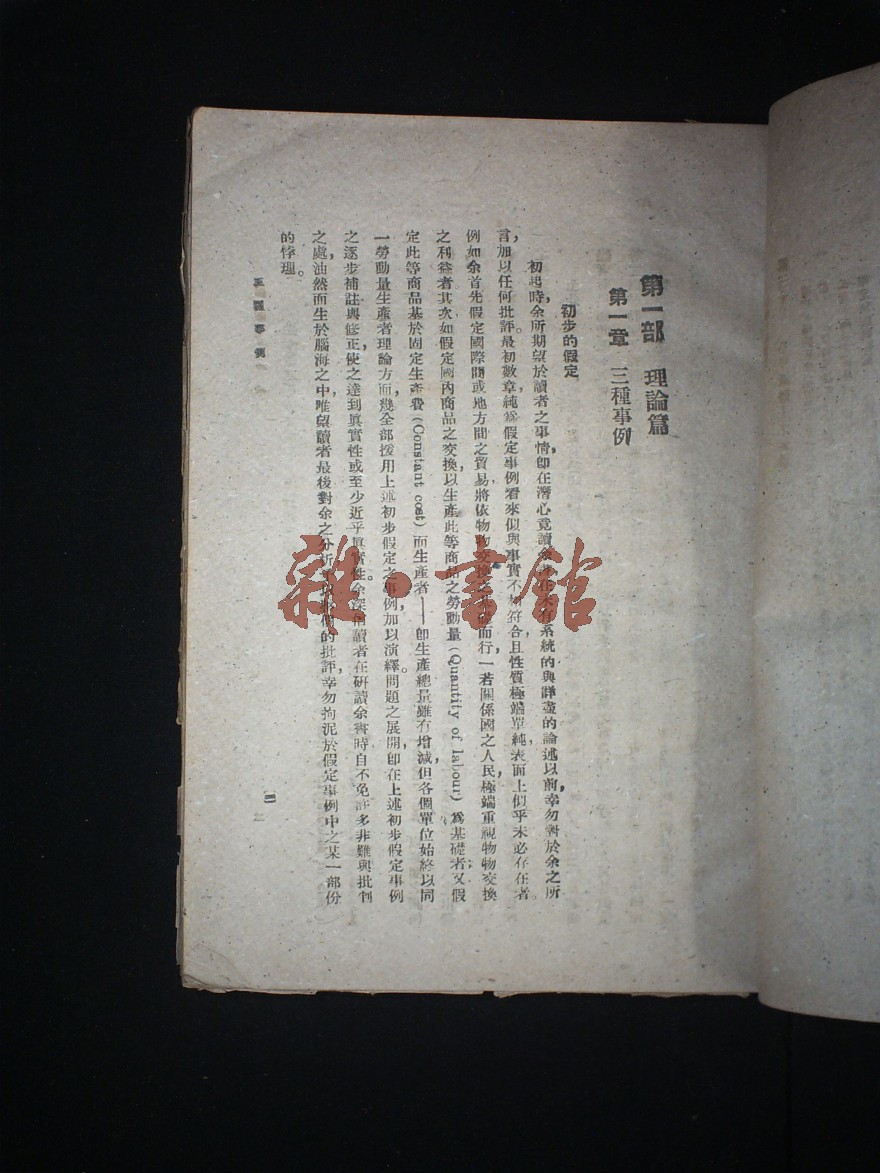 第一部 理論篇
第一章 三種事例
初步的假定
初起時,余所期望於讀者之事情,卽在潛心竟讀余書在未有系統的與詳盡的論述以前,幸勿對於余之所
言,加以任何批評。最初數章,純爲假定事例,看來似與事實不相符合,且性質極端單純,表面上似乎未必存在者。
例如余首先假定國際間或地方間之貿易,將依物物交換之基礎而行,一若關係國之人民,極端重視物物交換
之利益者;其次如假定國內商品之交換,以生產此等商品之勞動量(Quantity of labour)爲基礎者;又假
定此等商品基於固定生產費(Constant cost)而生產者——卽生產總量雖有增減,但各個單位始終以同
一勞動量生產者。理論方面,幾全部援用上述初步假定之事例,加以演繹。問題之展開,卽在上述初步假定事例
之逐步補註與修正,使之達到眞實性或至少近乎眞實性。余深信讀者在研讀余書時,自不免許多非難與批判
之處,油然而生於腦海之中,唯望讀者最後對余之分析 的批評,幸勿拘泥於假定事例中之某一部份
的悖理。
三種事例
雜·書館